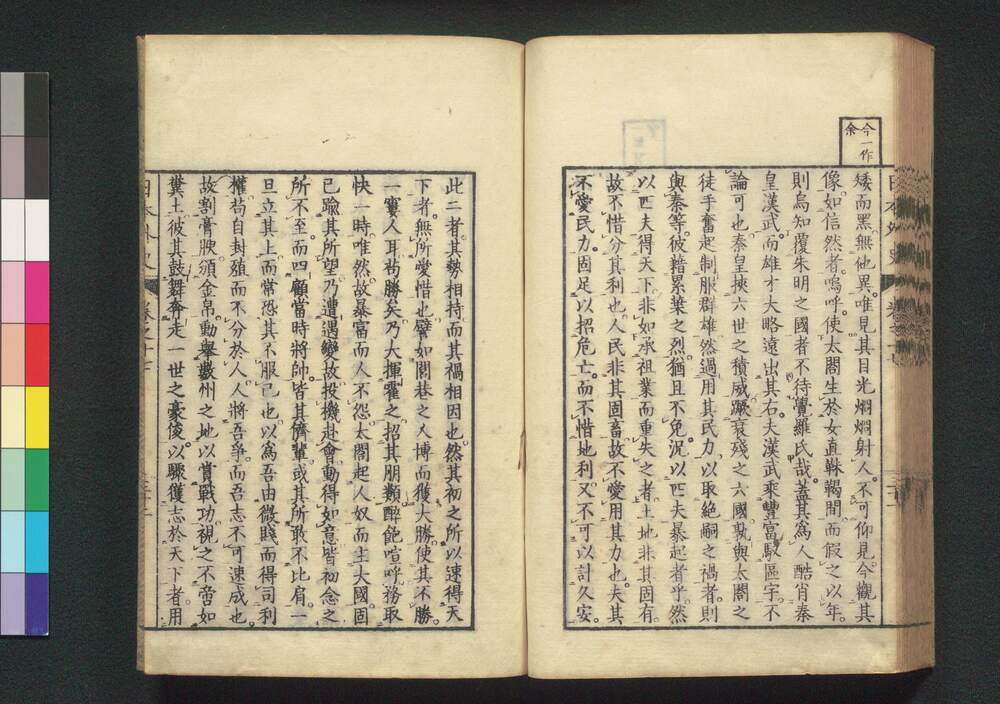 今一作
余
矮而黑無他異唯見其目光烱烱射人不可仰見今觀其
像如信然者嗚呼使太閤生於女直靺鞨間而假之以年
則烏知覆朱明之國者不待覺羅氏哉蓋其爲人酷肖秦
皇漢武而雄才大略遠出其右夫漢武乘豐富馭區宇不
論可也秦皇挾六世之積威蹶衰殘之六國孰與太閤之
徒手奮起制服群雄然過用其民力以取絕嗣之禍者則
與秦等彼藉累葉之烈猶且不免況以匹夫暴起者乎然
以匹夫得天下非如承祖業而重失之者土地非其固有
故不惜分其利也人民非其固畜故不愛用其力也夫其
不愛民力固足以招危亡而不惜地利又不可以計久安
此二者其勢相持而其禍相因也然其初之所以速得天
下者無所愛惜也譬如閭巷之人博而獲大勝使其不勝
一窶人耳苟勝矣乃大揮霍之招其朋類醉飽喧呼務取
快一時唯然故暴富而人不怨太閤起人奴而主大國固
已踰其所望乃遭遇變故投機赴會動得如意皆初念之
所不至而四顧當時將帥皆其儕輩或其所敢不比肩一
旦立其上而常恐其不服己也以爲吾由微賤而得司利
權苟自封殖而不分於人人將吾爭而吾志不可速成也
故割膏腴頒金帛動舉數州之地以賞戰功視之不啻如
糞土彼其鼓舞奔走一世之豪俊以驟獲志於天下者用
日本外史 卷之十七